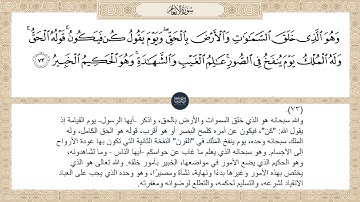 سورة الأنعام
وَهُوَ ٱلَّذِى خَلَقَ ٱلسَّمَٰوَٰتِ وَٱلْأَرْضَ بِٱلْحَقِّ ۖ وَيَوْمَ يَقُولُ كُن فَيَكُونُ ۚ قَوْلُهُ ٱلْحَقُّ ۚ
وَلَهُ ٱلْمُلْكُ يَوْمَ يُنفَخُ فِى ٱلصُّورِ ۚ عَٰلِمُ ٱلْغَيْبِ وَٱلشَّهَٰدَةِ ۚ وَهُوَ ٱلْحَكِيمُ ٱلْخَبِيرُ ٧٣
(٧٣)
والله سبحانه هو الذي خلق السموات والأرض بالحق، واذكر -أيها الرسول- يوم القيامة إذ
يقول الله: "كن"، فيكون عن أمره كلمح البصر أو هو أقرب، قوله هو الحق الكامل، وله
الملك سبحانه وحده، يوم ينفخ الملك في "القرن" النفخة الثانية التي تكون بها عودة الأرواح
إلى الأجسام. وهو سبحانه الذي يعلم ما غاب عن حواسكم -أيها الناس - وما تشاهدونه،
وهو الحكيم الذي يضع الأمور في مواضعها، الخبير بأمور خلقه. والله تعالى هو الذي
يختص بهذه الأمور وغيرها بدءًا ونهاية، نشأة ومصيرًا، وهو وحده الذي يجب على العباد
الانقياد لشرعه، والتسليم لحكمه، والتطلع لرضوانه ومغفرته.